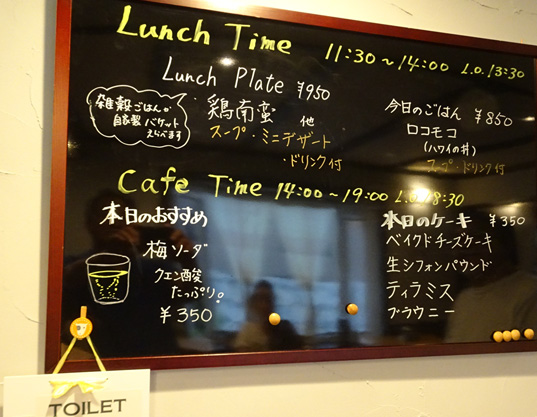 Lunch Time 11:30~14:00 L.O.13:30
Lunch Plate ¥950
雑穀ごはんか
自家製バケット
えらべます
鶏南蛮 他
スープ・ミニデザート
・ドリンク付
今日のごはん ¥850
ロコモコ
(ハワイの丼)
スープ・ドリンク付
Cafe Time 14:00~19:00 L.O.18:30
本日のおすすめ
梅ソーダ
クエン酸
たっぷり!
¥350
本日のケーキ ¥350
ベイクドチーズケーキ
生シフォンパウンド
ティラミス
ブラウニー
TOILET